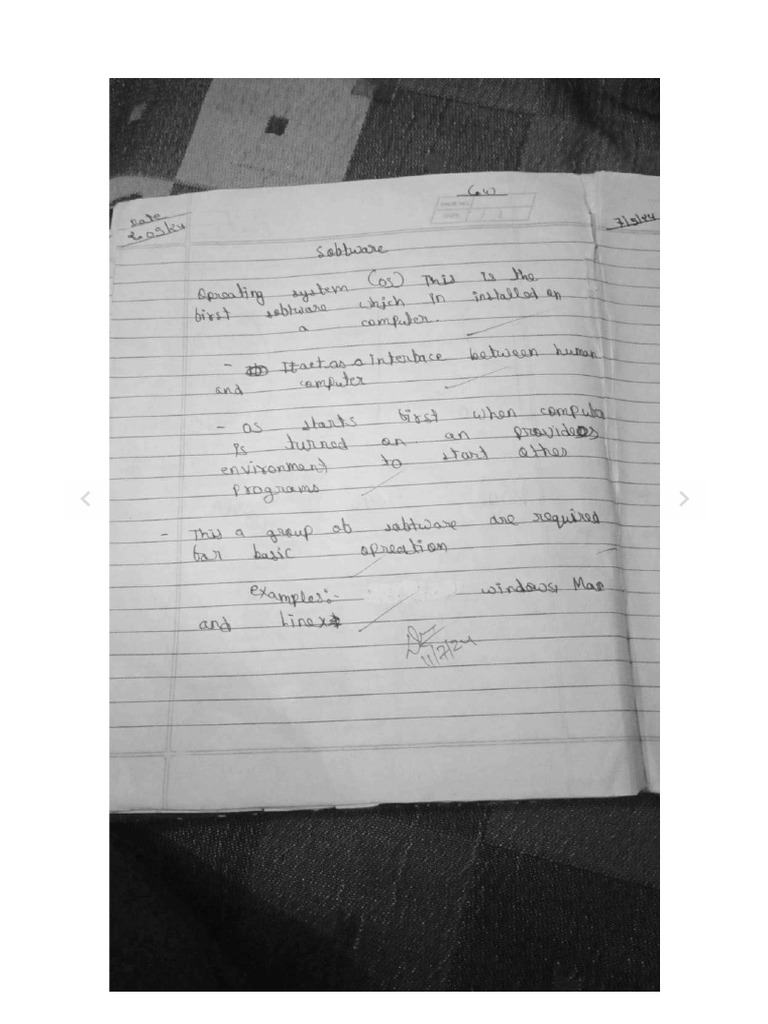 C.W
Date
7/5/24
Sobtware
Opreating system (OS) This is the
birst sobtware which in installed on
a computer.
- It act as a interbace between human
and computer
- OS starts birst when computer
is turned on an provides
environment to start other
programs
- This a group ob sobtware are required
bar basic opreation
examples:- windows, Mac
and Linex
11/7/24